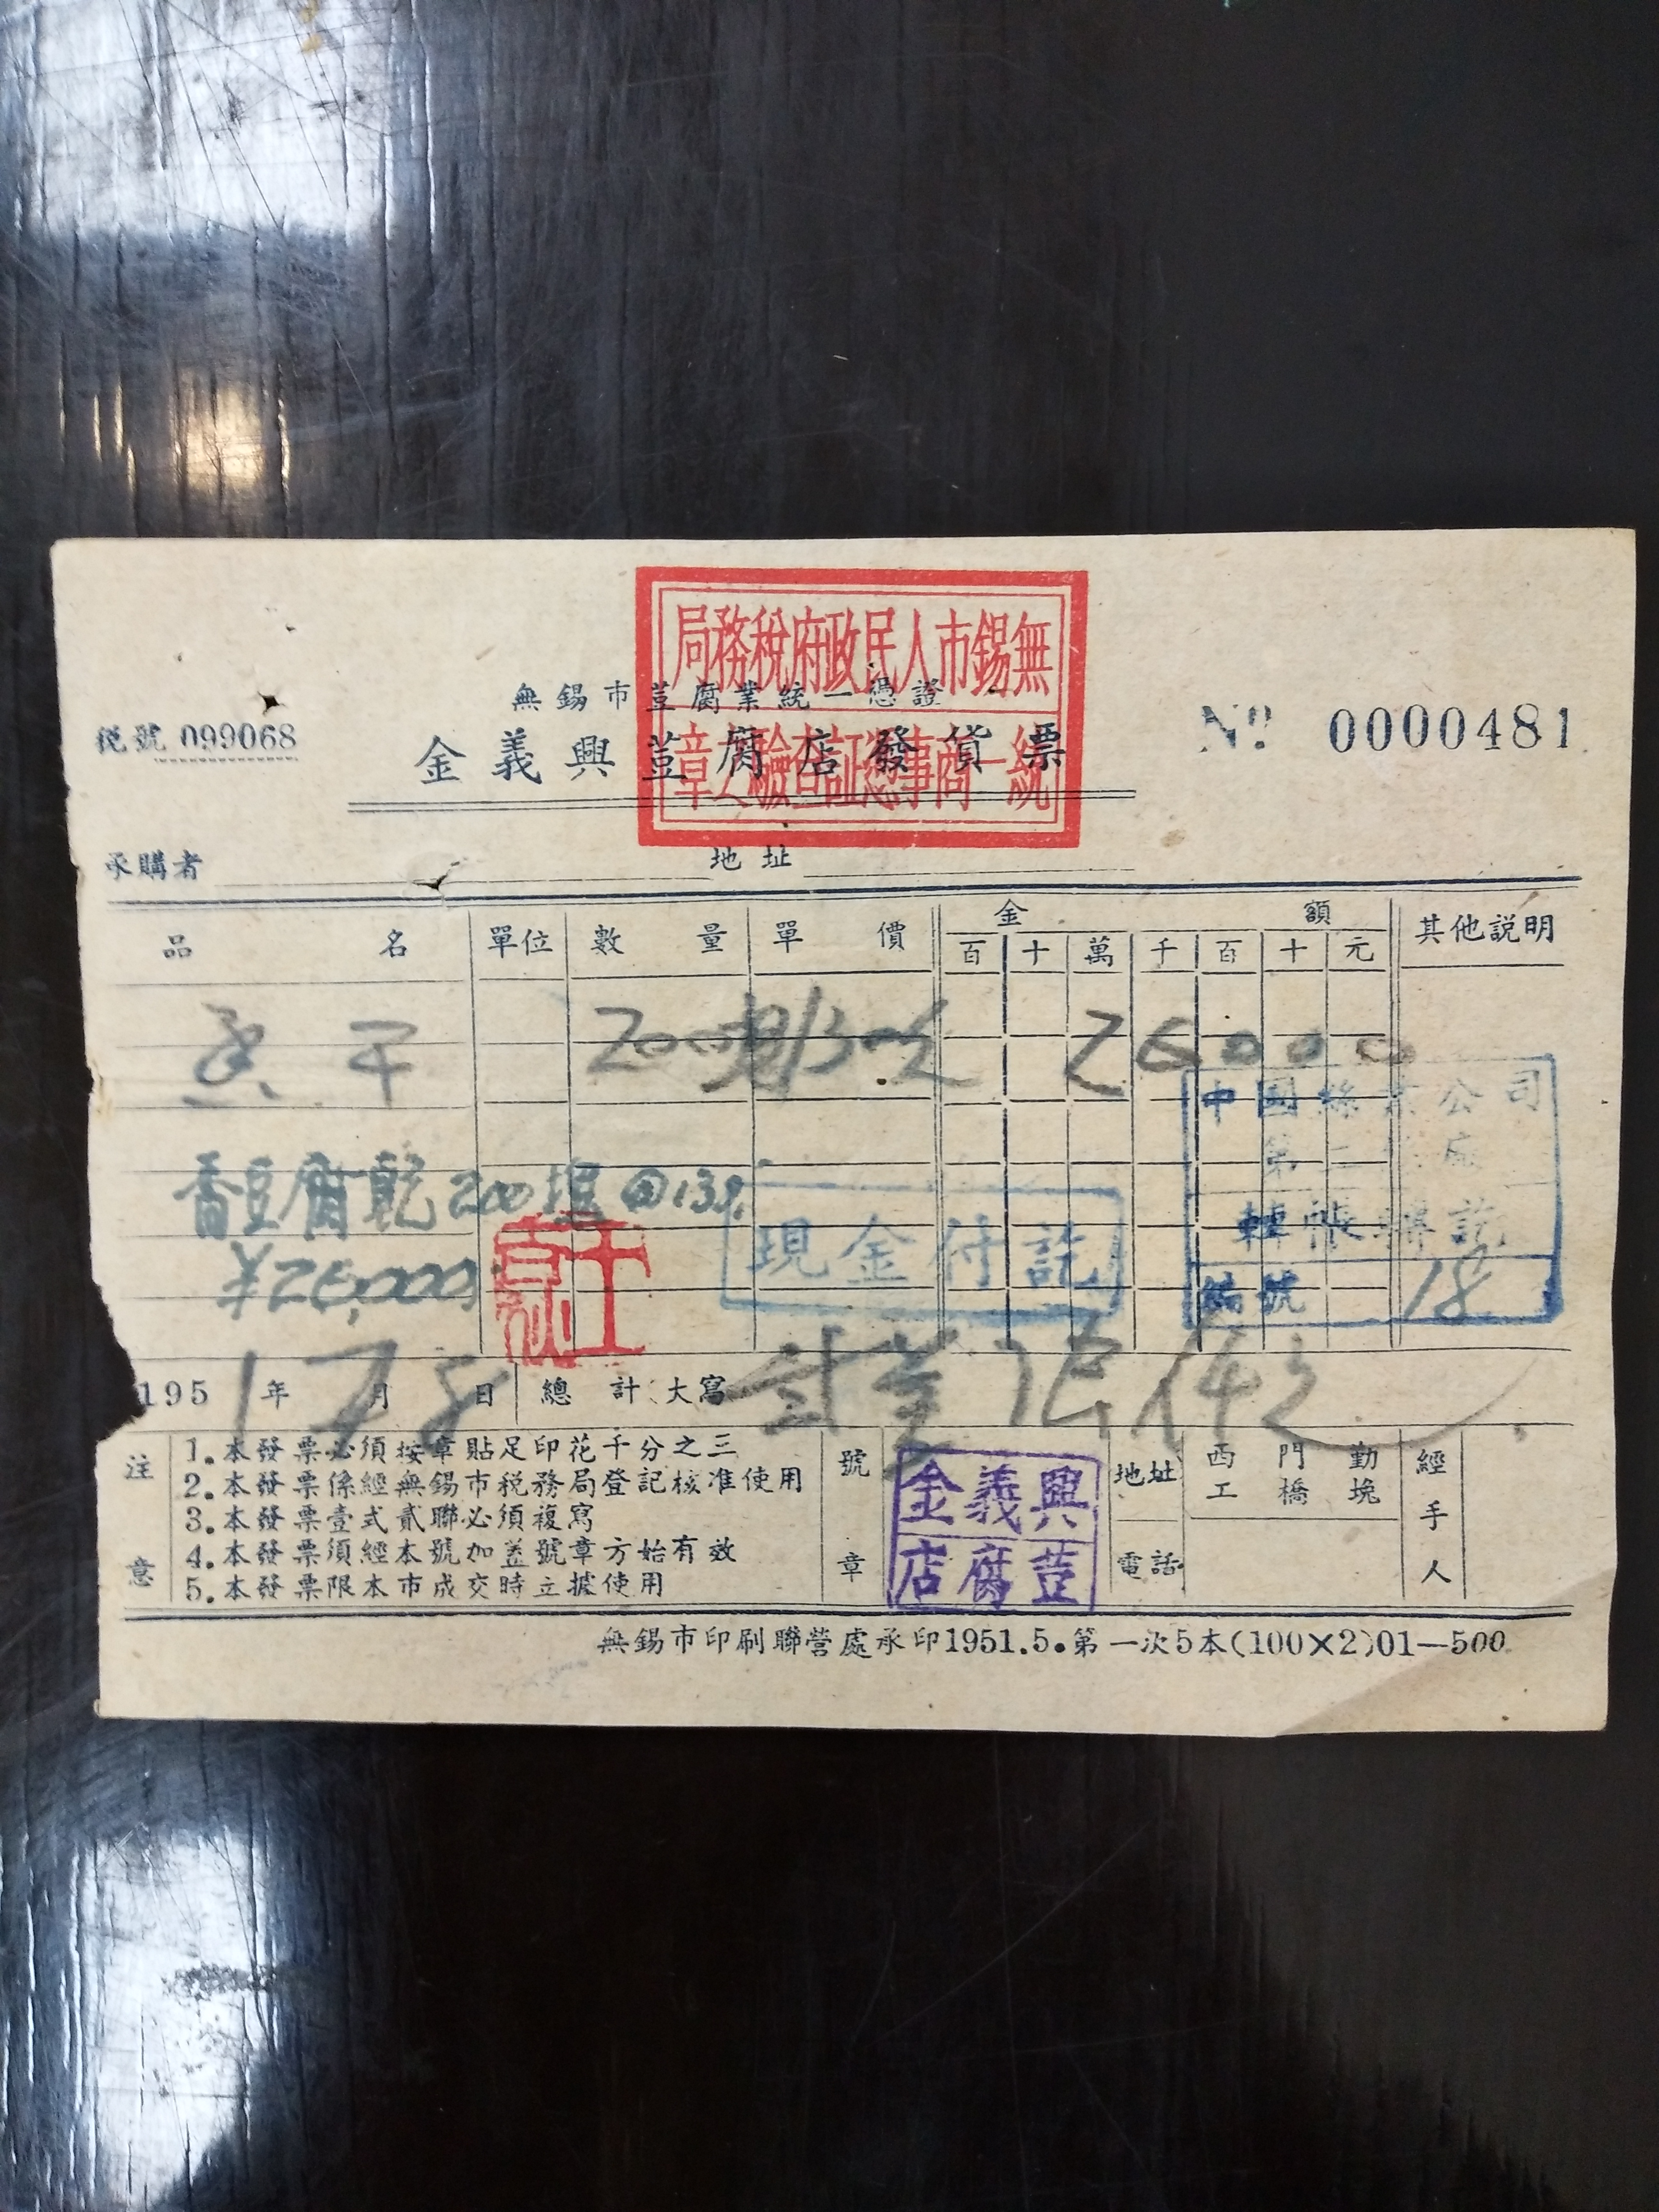 無錫市人民政府稅務局
統一商事憑証查驗之章
無錫市荳腐業統一憑證
稅號 099068
金義興荳腐店發貨票
№ 0000481
承購者 地址
品名 單位 數量 單價 金額 其他説明
百 十 萬 千 百 十 元
香干 200塊 130 26000
中國絲業公司
第二 廠
香豆腐乾 200塊 @130
轉帳 訖
現金付訖
¥26,000
編號 18
1951年7月8日 總計大寫
注意
1.本發票必須按章貼足印花千分之三
2.本發票係經無錫市稅務局登記核准使用
3.本發票壹式貳聯必須複寫
4.本發票須經本號加蓋號章方始有效
5.本發票限本市成交時立據使用
號章
金義興
荳腐店
地址 西門勤工橋堍
電話
經手人
無錫市印刷聯營處承印1951.5.第一次5本(100×2)01—500